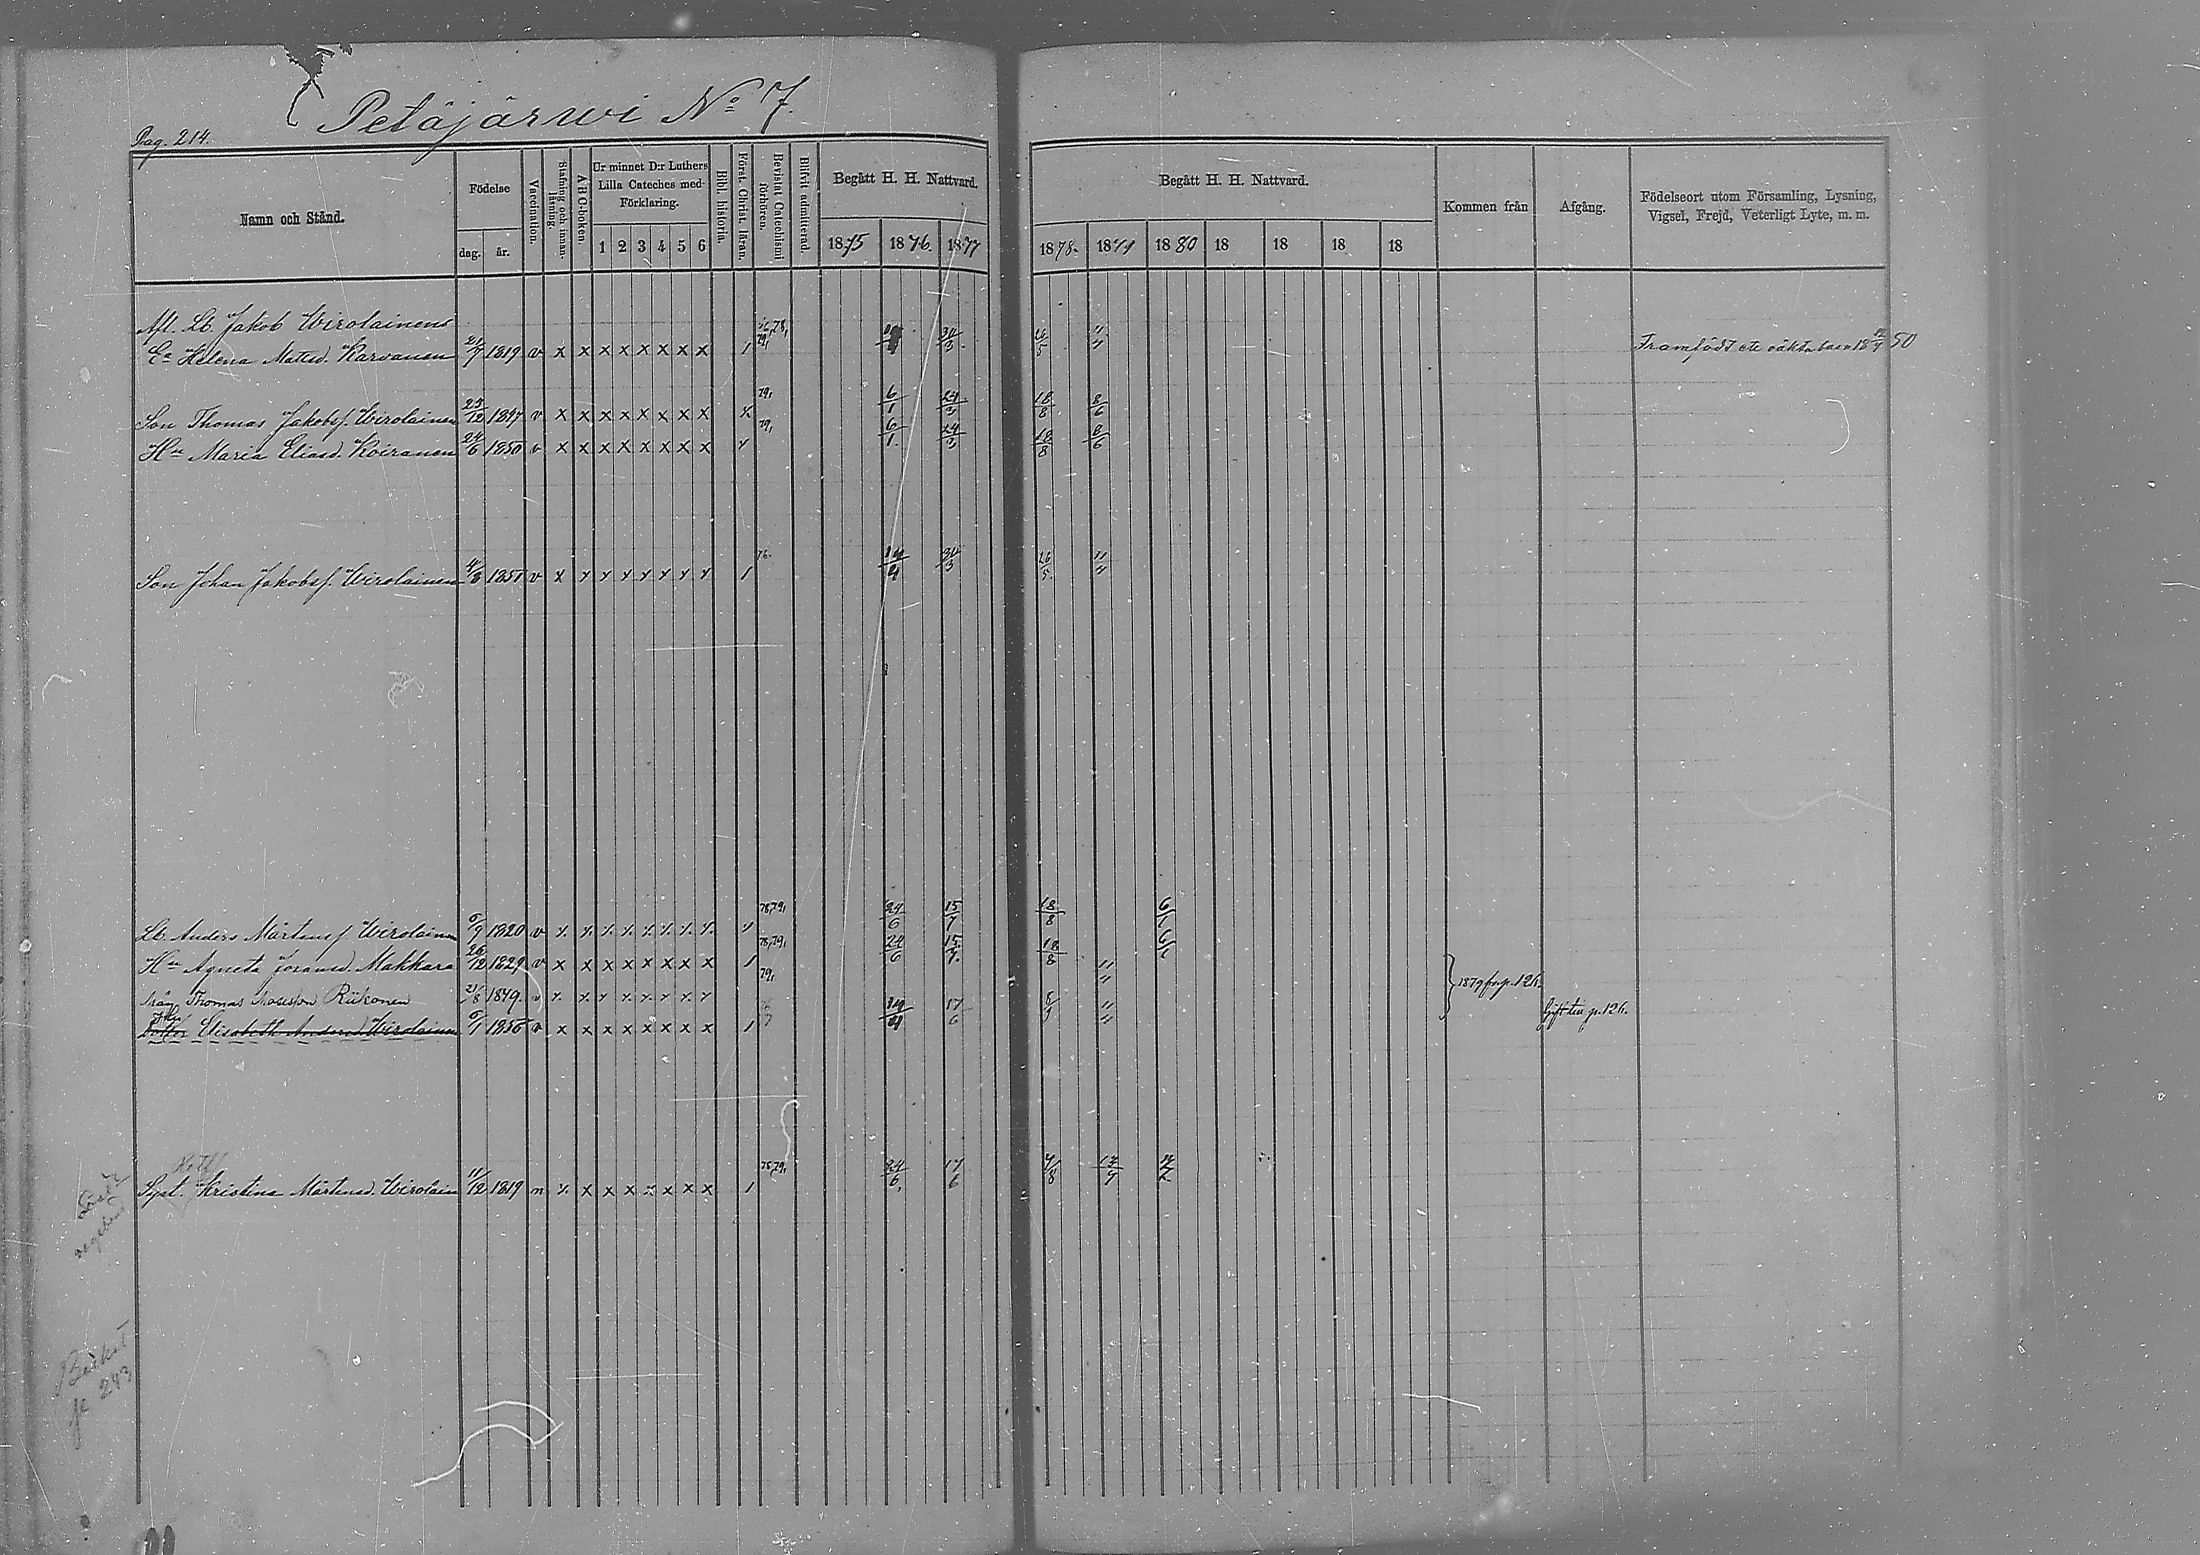 Petäjärwi No 7.
Pag. 214.
Namn och Stånd.
Födelse
dag. år.
Vaccination.
Stafning och innan-läsning.
A B C-boken.
Ur minnet D:r Luthers
Lilla Cateches med
Förklaring.
1 2 3 4 5 6
Bibl. historia.
Först. Christ. läran.
Bevistat Catechismi förhören.
Blifvit admitterad.
Begått H. H. Nattvard.
1875 1876. 1877
Begått H. H. Nattvard.
1878. 1879 1880 18 18 18 18
Kommen från
Afgång.
Födelseort utom Församling, Lysning,
Vigsel, Frejd, Veterligt Lyte, m. m.
Afl. Lb. Jakob Wirolainens
Ea Helena Matsd. Karvanen 21/7 1819 v x x x x x x x x 1 79, 26/5 11/4 Framfödt ett oäkta barn 50
Son Thomas Jakobsf. Wirolainen 23/12 1847 v x x x x x x x x x 79, 6/1 24/3 18/8 8/6
Hu Maria Eliasd. Koiranen 24/6 1850 v x x x x x x x x 79, 6/1. 24/3 18/8 8/6
Son Johan Jakobsf. Wirolainen 4/3 1851 v x x x x x x x x 1 76. 26/5. 11/4
Lb. Anders Mårtensf. Wirolainen 6/9 1820 v x x x x x x x x 78,79, 24/6 15/7 18/8 6/1
Hu Agneta Joransd. Makkara 26/12 1829 v x x x x x x x x 1 78,79, 24/6 15/7. 18/8 6/1
Måg Thomas Mosesson Riikonen 21/8 1849. v x x x x x x x x 79, 11/4 1879 fr. p. 126.
Dotter Elisabeth Andersd. Wirolainen 6/1 1856 v x x x x x x x x 1 17/6 11/4 Gift till p. 126.
Syst. Kristina Mårtensd. Wirolain 11/12 1819 m x x x x x x x x 1 78,79, 24/6. 17/6 4/8